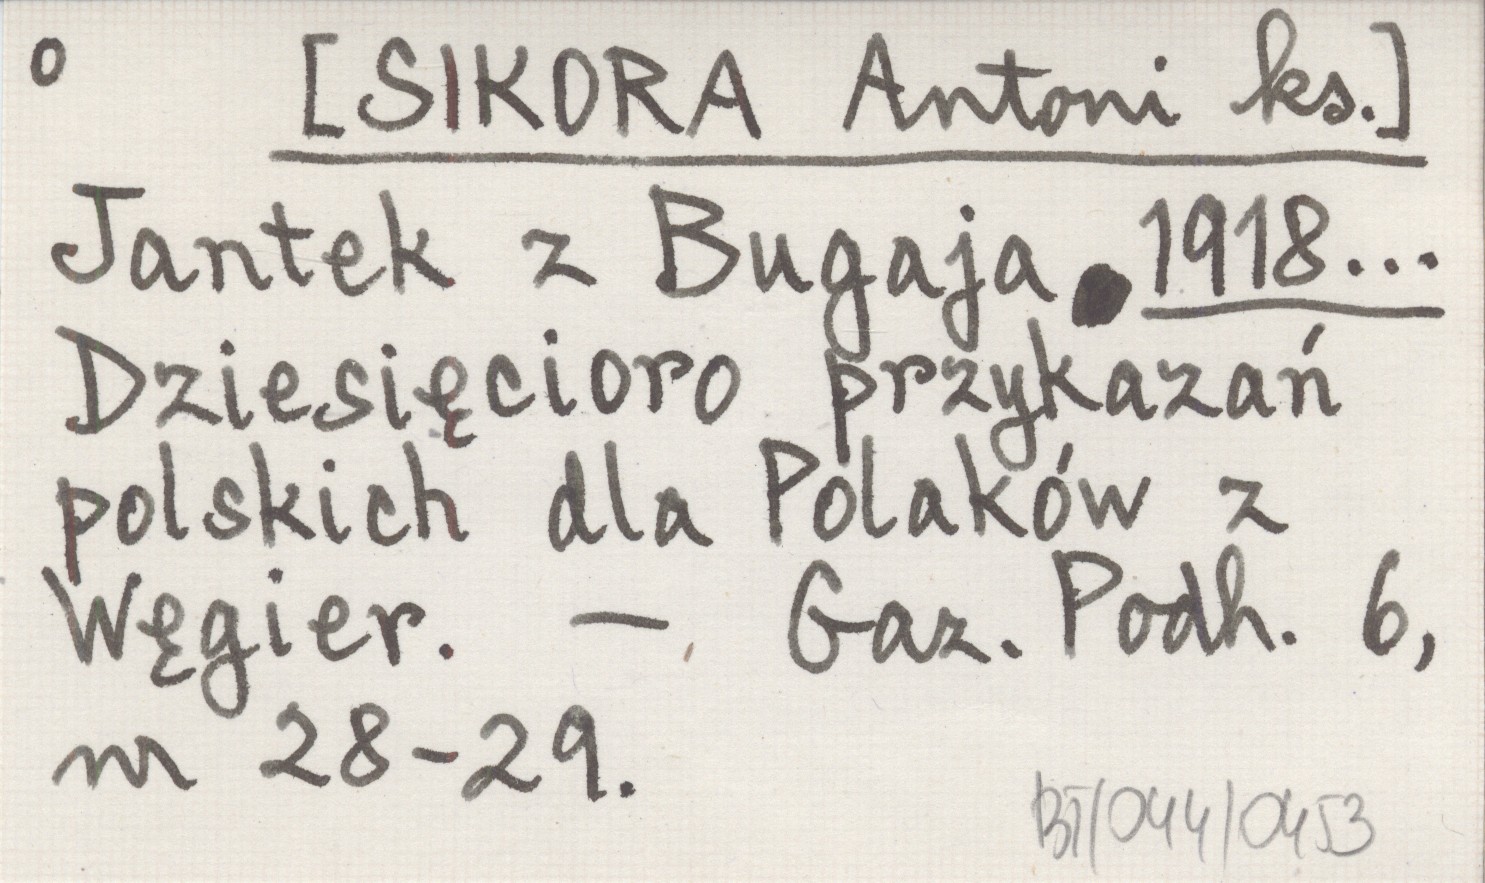 o [SIKORA Antoni ks.]
Jantek z Bugaja. 1918...
Dziesięcioro przykazań
polskich dla Polaków z
Węgier. — Gaz. Podh. 6,
nr 28-29.
BT/044/0453